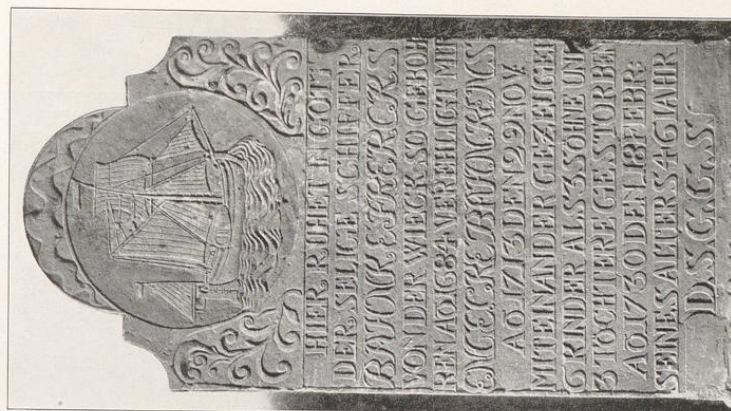 HIER RUHET IN GOTT
DER SELIGE SCHIFFER
VON DER WIECK SO GEBOH
REN AO 1684 VEREHLIGT MIT
AO 1713 DEN 29 NOV.
MITEINANDER GEZEUGET
6 KINDER ALS 3 SÖHNE UND
3 TÖCHTERE GESTORBEN
AO 1730 DEN 18 FEBR:
SEINES ALTERS 46 JAHR
D. S. G. G. S.